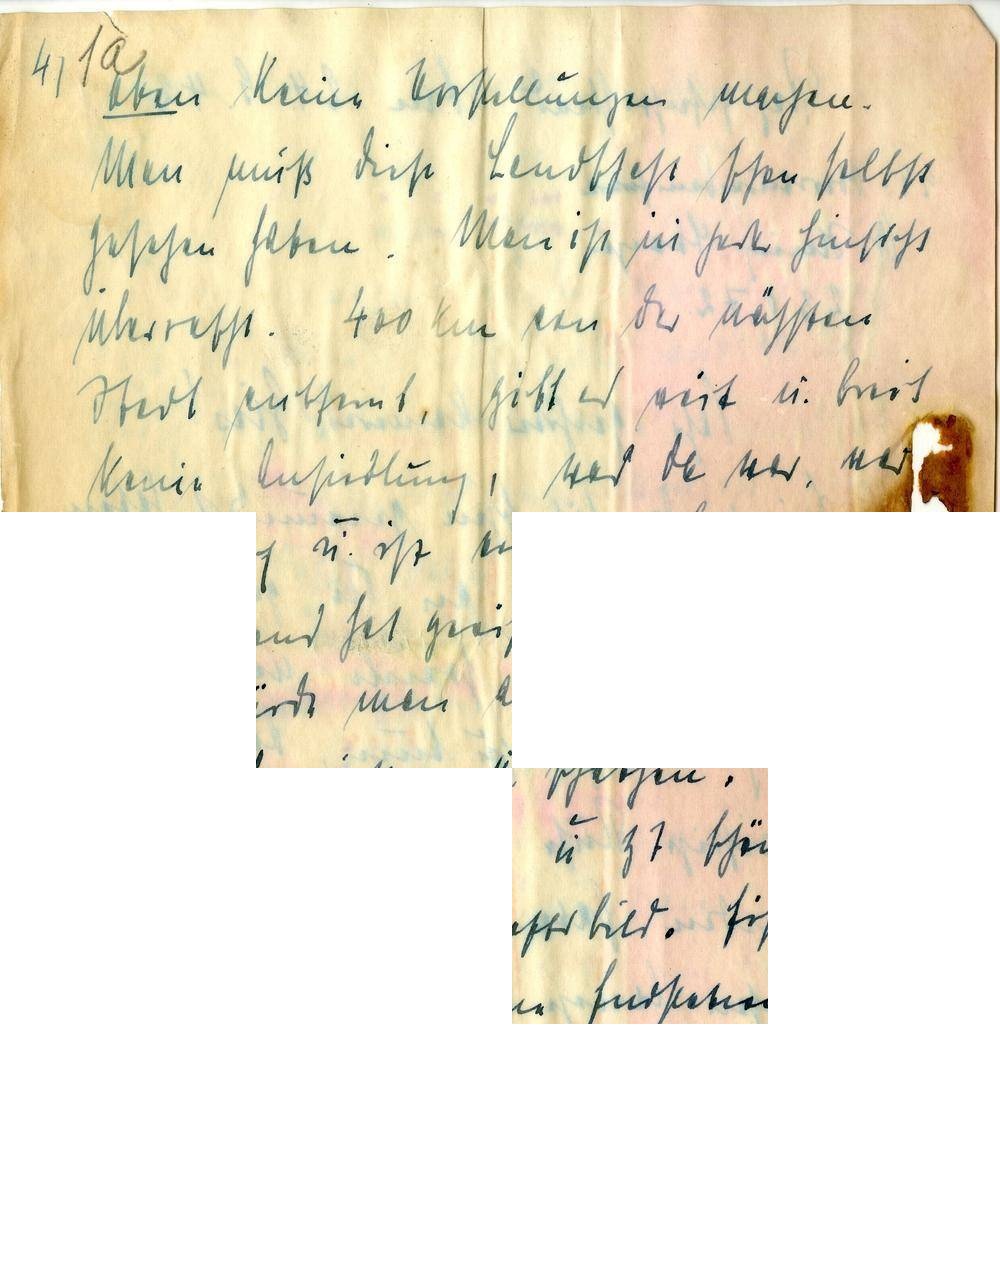 4) 1a
eben keine Vorstellungen machen.
Man muß diese Landschaft schon selbst
gesehen haben. Man ist in jeder Hinsicht
überrascht. 400 km von der nächsten
Stadt entfernt, gibt es weit u. breit
keine Ansiedlung, was da war, war
u. ist
und hat
man
u
bild.
Endstation